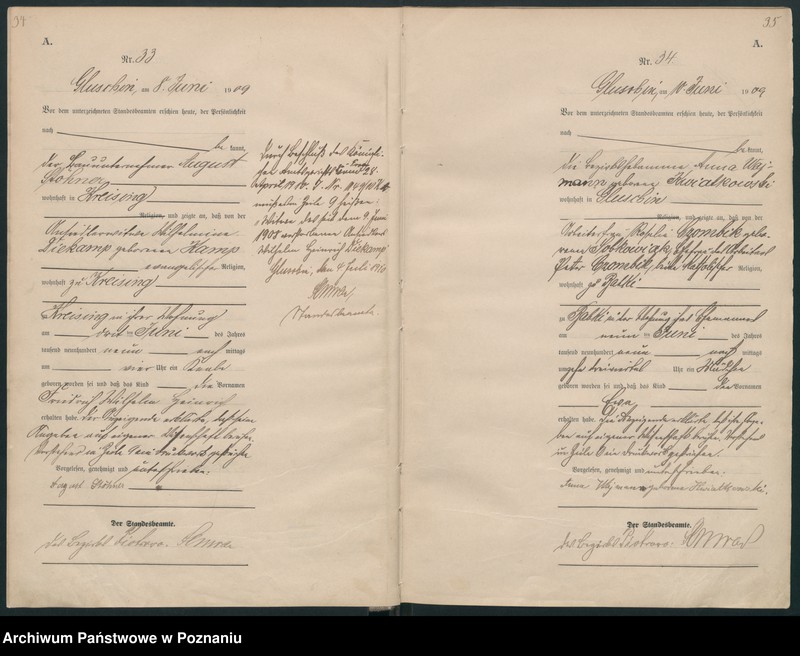 34
A.
Nr. 33
Gluschin, am 8. Juni 1909
Vor dem unterzeichneten Standesbeamten erschien heute, der Persönlichkeit
nach
be kannt,
der Bauunternehmer August
Höhne
wohnhaft in Kreising
Religion, und zeigte an, daß von der
Wilhelmine
Diekamp geborene Kamp
evangelischer Religion,
wohnhaft zu Kreising
Kreising in ihrer Wohnung
am drei ten Juni des Jahres
tausend neunhundert neun nach mittags
um vier Uhr ein Knabe
geboren worden sei und daß das Kind die Vornamen
Friedrich Wilhelm Heinrich
erhalten habe. Der Anzeigende erklärte, daß seine
Angaben auf eigener Wissenschaft beruhen.
Vorstehend in Zeile ein Druckwort gestrichen.
Vorgelesen, genehmigt und unterschrieben.
August Höhne
Der Standesbeamte.
des Bezirks
Durch Beschluß des Königli-
chen Amtsgerichts
April 1910
muß es in Zeile 9 heißen:
Witwe des am 9. Juni
1908 verstorbenen
Wilhelm Heinrich Diekamp
Gluschin, den 4. Juli 1910
Standesbeamte.
35
A.
Nr. 34.
Gluschin, am 10. Juni 1909
Vor dem unterzeichneten Standesbeamten erschien heute, der Persönlichkeit
nach
be kannt,
die Bezirkshebamme Anna Waj-
mann geborene Kwiatkowski
wohnhaft in Gluschin
Religion, und zeigte an, daß von der
Rosalie Czombik gebo-
rene Sobkowiak, Ehefrau des Arbeiters
Peter Czombik, beide katholischer Religion,
wohnhaft zu Babki
zu Babki in der Wohnung des Ehemannes
am neun ten Juni des Jahres
tausend neunhundert neun nach mittags
um Uhr ein Mädchen
geboren worden sei und daß das Kind den Vornamen
Ewa
erhalten habe. Die Anzeigende erklärte, daß ihre Anga-
ben auf eigener Wissenschaft beruhen. Vorstehend
in Zeile ein Druckwort gestrichen.
Vorgelesen, genehmigt und unterschrieben.
Anna Wajmann geborene Kwiatkowski.
Der Standesbeamte.
des Bezirks
Archiwum Państwowe w Poznaniu